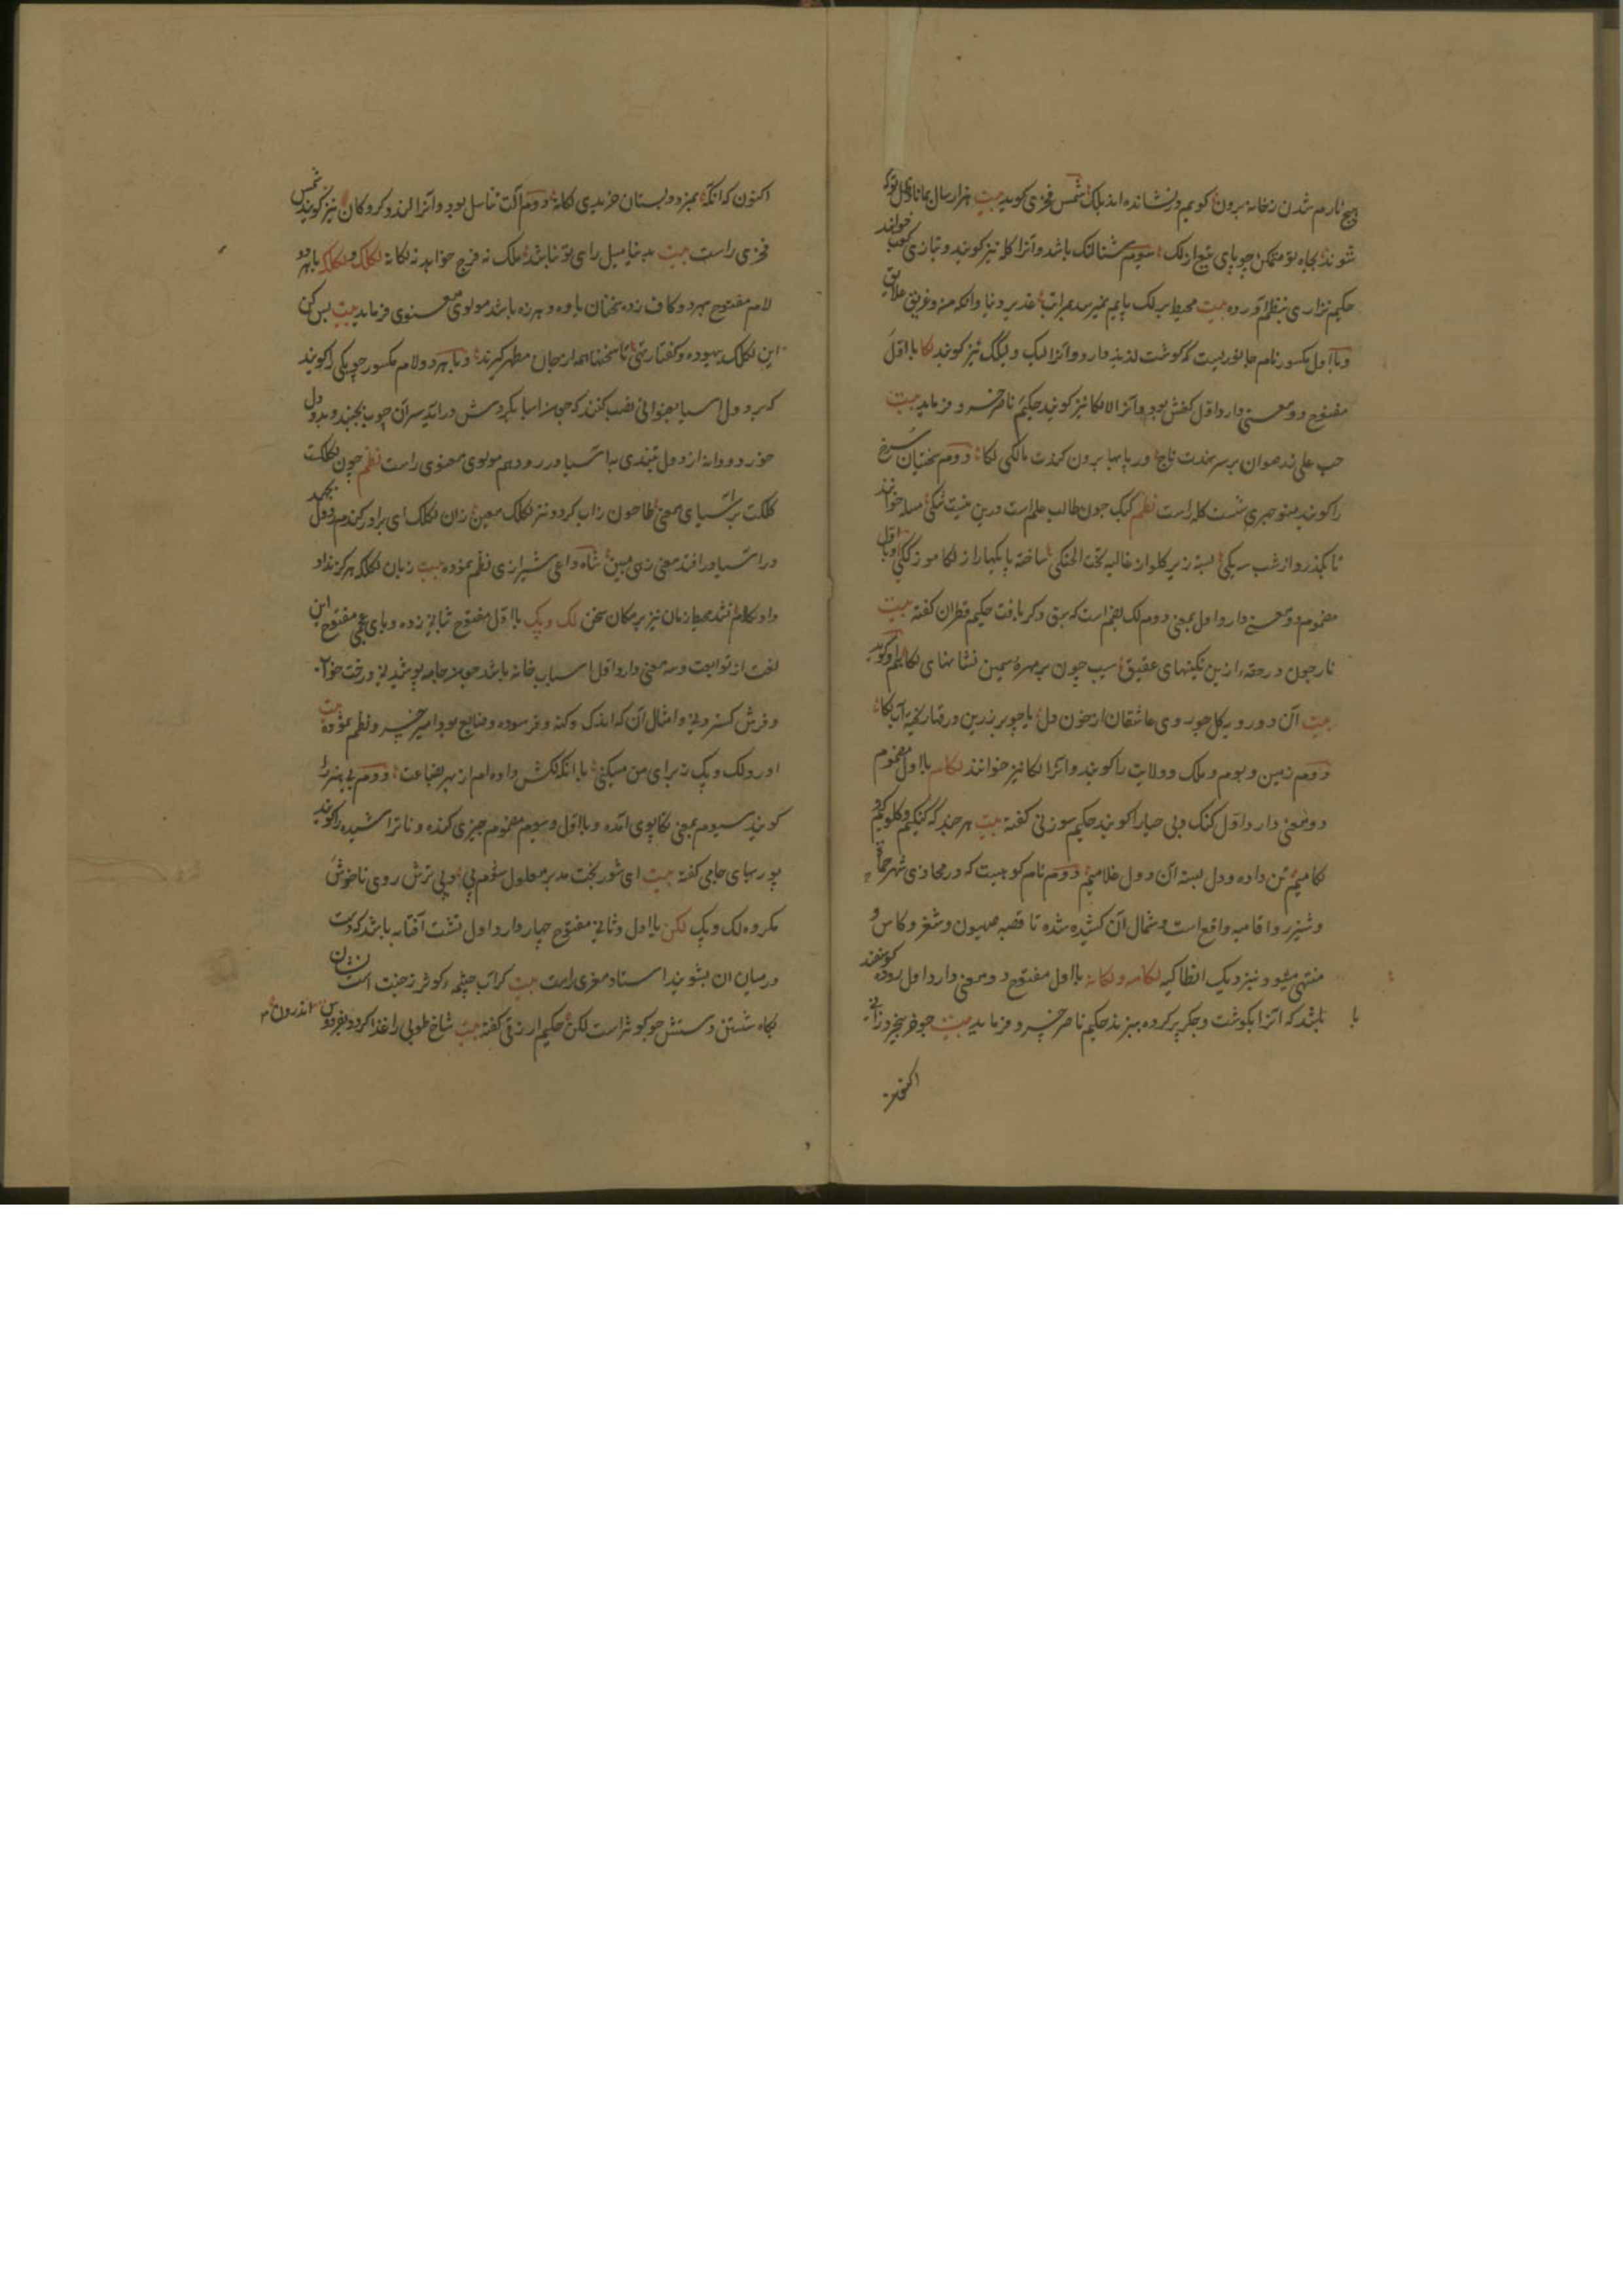 هیچ نارم شدن زخانه برون کویم درنشانده اند بلک شمس فخری کوید بیت هزار سال بمانادی دل توکه
شوند بجاه تو متمکن چو پای تیغ از لک سیوم شتالنک باشد و آنرا کله نیز کویند و بتازی کعب خوانند
حکیم نزاری بنظم آورده بیت محیط بر لک پایم نمیرسد بمراتب غدیر دنیا وانکه من و غریق علایق
و با اول مکسور نام جانوریست که کوشت لذیذ دارد و آنرا لیک و لیکک نیز کویند لکا با اول
مفتوح دو معنی دارد اول کفش بود و آنرا لالکا نیز کویند حکیم ناصر خسرو فرماید بیت
حب علی ز رضوان بر سر نهدت تاج در پایها برون کندت مالکی لکا دوم سختیان سرخ
را کویند منوچهری شست کله راست نظم کبک چون طالب علم است درین نیست شکی مسله خواند
تا بکذرد از شب سه یکی بسته زیر کلو از غالیه تحت الحنکی ساخته پایکها را ز لکا موزککی و با اول
مضموم دو معنی دارد اول بمعنی دوم لک بضم است که سبق ذکر یافت حکیم قطران کفته بیت
نار چون در حقه زرین نکینهای عقیق سیب چون بر مهره سیمین نشانهای لکا دوم کویند
بیت آن دو رویه کل چو روی عاشقان از خون دل یا چو بر زرین ورق ریخته آب لکا
دوم زمین و بوم و ملک و ولایت را کویند و آنرا لکا نیز خوانند لکام با اول مضموم
دو معنی دارد اول کنک و بی حیا را کویند حکیم سوزنی کفته بیت هرچند که کنکیم و کلوکیم و
لکامیم تن داده و دل بسته آن دول غلامیم دوم نام کوهیست که در محاذی شهر حماة
و شیزر و افامیه واقع است و شمال آن کشیده شده تا قصبه صهیون و شغر و کاس و
منتهی میشود نزدیک انطاکیه لکامه و لکانه با اول مفتوح دو معنی دارد اول روده کوسفند
باشد که آنرا بکوشت و جکر پر کرده بپزند حکیم ناصر خسرو فرماید بیت چو خر بیخرد زانی
اکنون
اکنون که آنکه بمزد دبستان خریدی لکانه دوم آلت تناسل بود و آنرا لند و کروکان نیز کویند شمس
فخری راست بیت بدنیا میل رای تو نباشد ملک نه فرج خواهد نه لکانه لکلک و لکلکه با هر دو
لام مفتوح بهر دو کاف زده سخنان یاوه و هرزه باشد مولوی معنوی فرماید بیت بس کن
این لکلک بیهوده و کفتار تهی تا سخنها همه از جان مطهر کیرند و با هر دو لام مکسور چوبکی را کویند
که بر دول آسیا بعنوانی نصب کنند که چون آسیا بکردش درآید سر آن چوب بجنبد و بدول
خورد و دانه از دول بتندی به آسیا در رود هم مولوی معنوی راست نظم چون لکلکت
لکلکت بر آسیای معنی طاحون ز آب کردد نه ز لکلک معین زان لکلک ای برادر کندم ز دول بجهد
در آسیا درافتد معنی زهی مبین شاه داعی شیرازی نظم نموده بیت زبان لکلکه هرکز نداد
داد کلام نشد محیط زمان نیز بر مکان سخن لک و پک با اول مفتوح بثانی زده و بای عجمی مفتوح این
لغت از توابعت و سه معنی دارد اول اسباب خانه باشد چون جامه پوشیدنی و رخت خواب
و فرش کستردنی و امثال آن که اندک و کهنه و فرسوده و ضایع بود امیر خسرو نظم نموده بیت
آورد لک و پک ز برای من مسکین با آنکه لکش داده ام از بهر بضاعت دوم بی هنر را
کویند سیوم بمعنی تکاپوی آمده و با اول و سیوم مضموم چیزی کنده و ناتراشیده را کویند
پور بهای جامی کفته بیت ای شور بخت مدبر معلول شوم پی وی ترش روی ناخوش
مکروه لک و پک لکن با اول و ثانی مفتوح چهار دارد اول تشت آفتابه باشد که دست
در میان آن بشویند استاد مغری راست بیت کر آب چشمه کوثر ز جنت است نشان
بکاه شستن دستش چو کوثر است لکن حکیم ازرقی کفته بیت شاخ طوبی را غذا کردد بفردوس اندرون